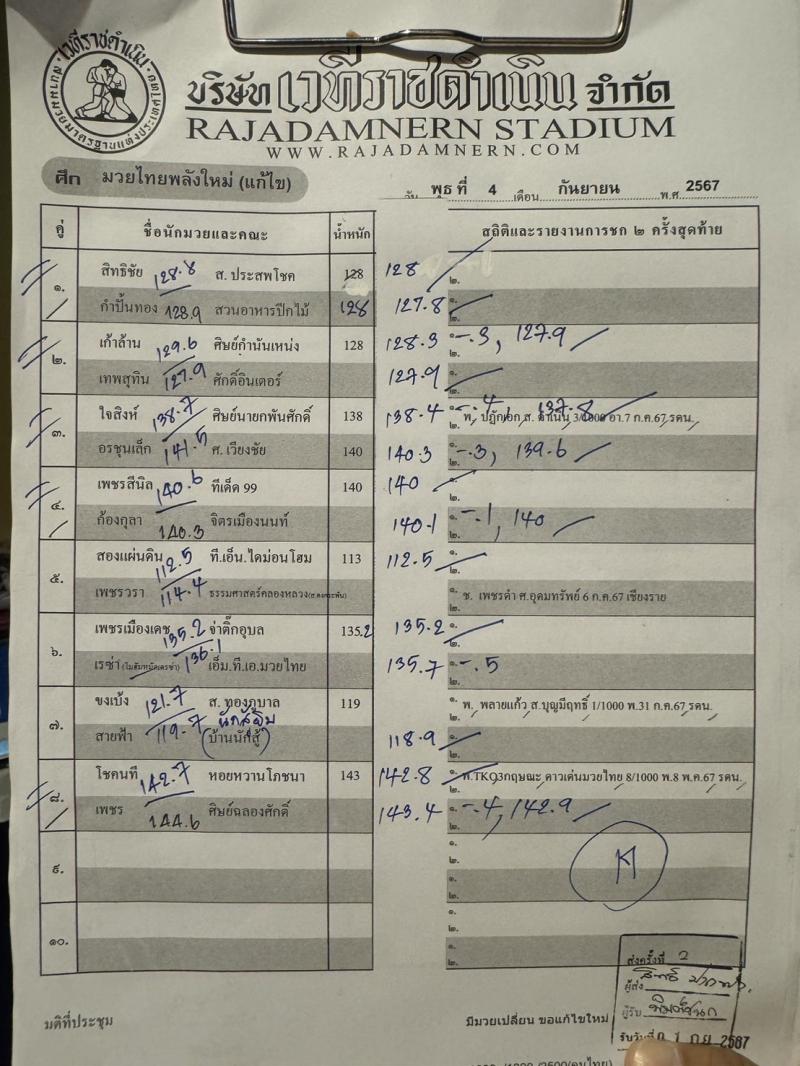 เวทีราชดำเนิน
สนามมวยมาตรฐานแห่งประเทศไทย
บริษัท เวทีราชดำเนิน จำกัด
RAJADAMNERN STADIUM
WWW.RAJADAMNERN.COM
ศึก มวยไทยพลังใหม่ (แก้ไข) วัน พุธ ที่ 4 เดือน กันยายน พ.ศ. 2567
คู่ ชื่อนักมวยและคณะ น้ำหนัก สถิติและรายงานการชก ๒ ครั้งสุดท้าย
๑. สิทธิชัย 128.8 ส. ประสพโชค 128 128 ๒.
กำปั้นทอง 128.9 สวนอาหารปีกไม้ 128 127.8 ๑. ๒.
๒. เก้าล้าน 129.6 ศิษย์กำนันเหน่ง 128 128.3 ๑. -.3, 127.9 ๒.
เทพสุทิน 127.9 ศักดิ์อินเตอร์ 127.9 ๑. ๒.
๓. ใจสิงห์ 138.7 ศิษย์นายกพันศักดิ์ 138 138.4 -.4, 137.8 ๑. พ. ปฏักเอก ส. ดำเนิน 3/1000 อา.7 ก.ค.67 รดน. ๒.
อรชุนเล็ก 141.5 ศ. เวียงชัย 140 140.3 ๑. -.3, 139.6 ๒.
๔. เพชรสีนิล 140.6 ทีเด็ด 99 140 140 ๑. ๒.
ก้องกุลา 140.3 จิตรเมืองนนท์ 140.1 ๑. -.1, 140 ๒.
๕. สองแผ่นดิน 112.5 ที.เอ็น.ไดม่อนโฮม 113 112.5 ๑. ๒.
เพชรวรา 114.4 ธรรมศาสตร์คลองหลวง ๑. ช. เพชรดำ ศ.อุดมทรัพย์ 6 ก.ค.67 เชียงราย ๒.
๖. เพชรเมืองเดช 135.2 จ่าติ๊กอุบล 135.2 135.2 ๑. ๒.
เรซ่า 136.1 เอ็ม.ที.เอ.มวยไทย 135.7 ๑. -.5 ๒.
๗. ขงเบ้ง 121.7 ส. ทองภูบาล 119 ๑. พ. พลายแก้ว ส.บุญมีฤทธิ์ 1/1000 พ.31 ก.ค.67 รดน. ๒.
สายฟ้า 119.7 (บ้านนักสู้) 118.9 ๑. ๒.
๘. โชคนที 142.7 หอยหวานโภชนา 143 142.8 ๑. พ.TKO3กฤษณะ ดาวเด่นมวยไทย 8/1000 พ.8 พ.ค.67 รดน. ๒.
เพชร 144.6 ศิษย์ฉลองศักดิ์ 143.4 ๑. -.4, 142.9 ๒.
๙. ๑. ๒.
๑. ๒.
๑๐. ๑. ๒.
๑. ๒.
ส่งครั้งที่ 2
ผู้ส่ง
ผู้รับ
มติที่ประชุม มีมวยเปลี่ยน ขอแก้ไขใหม่ รับวันที่ 0 1 กย 2567